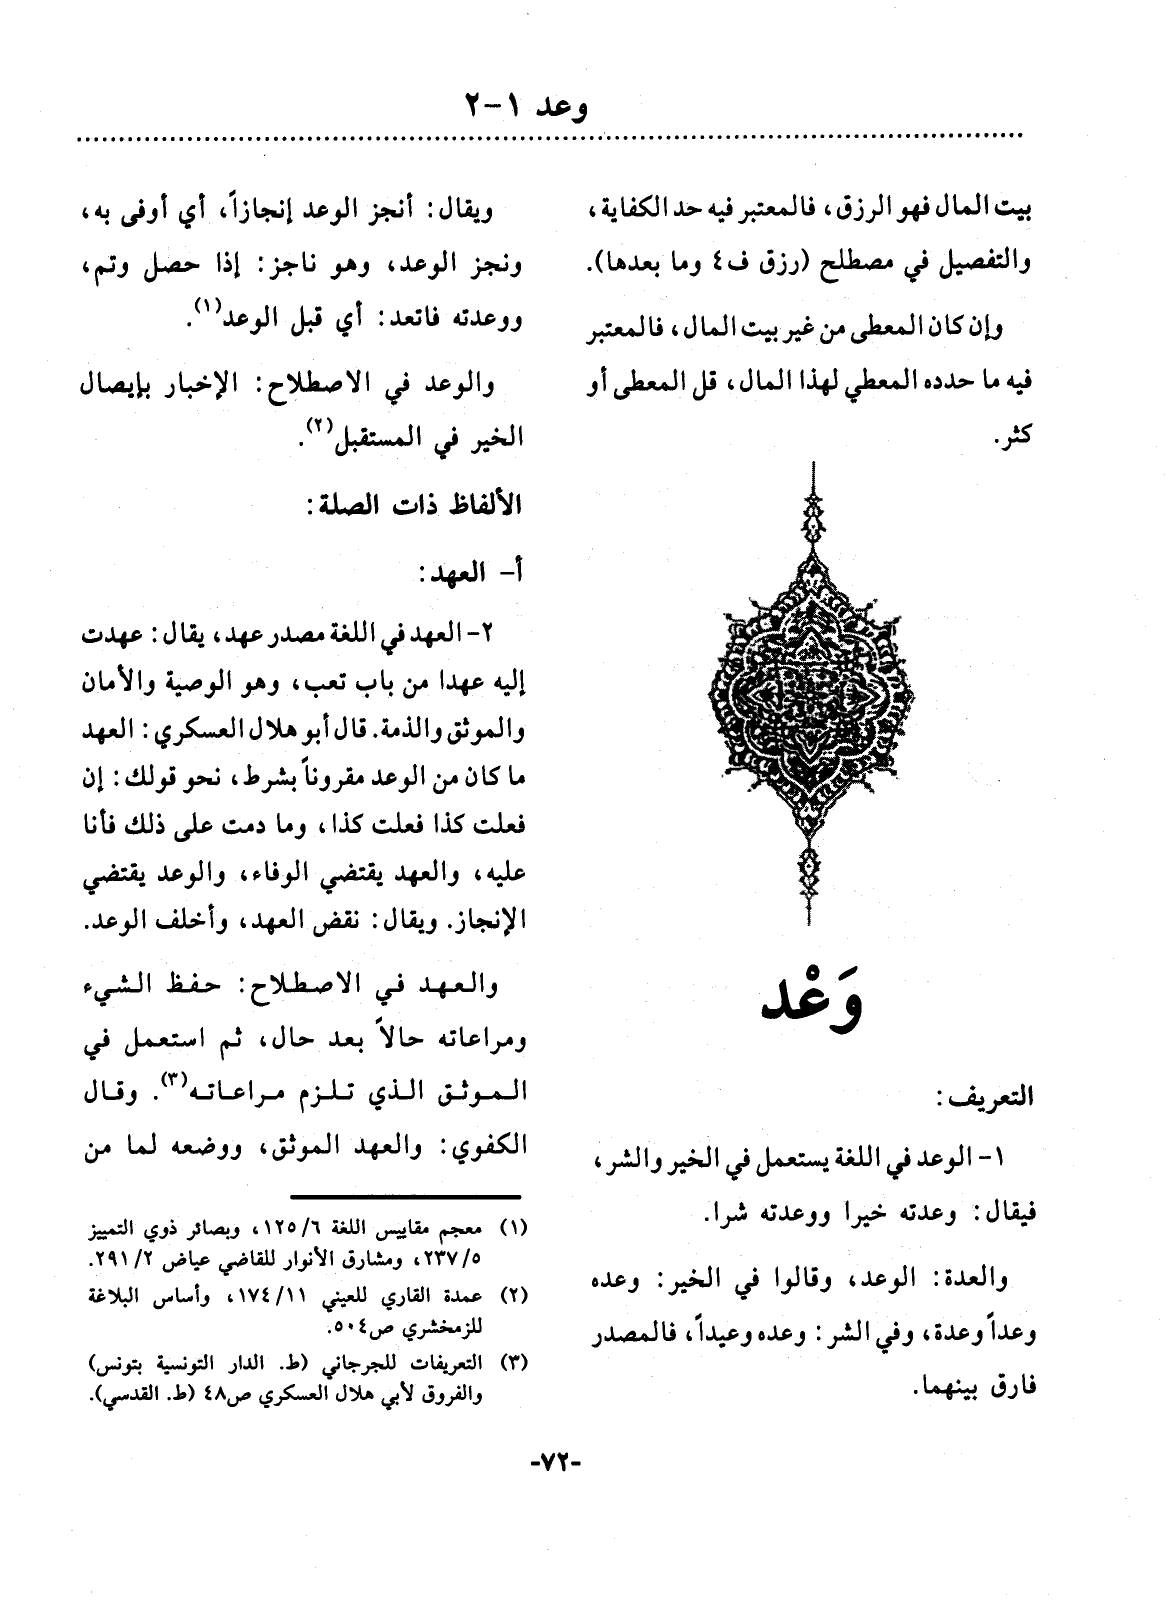 وعد ١-٢
بيت المال فهو الرزق، فالمعتبر فيه حد الكفاية،
والتفصيل في مصطلح (رزق ف٤ وما بعدها).
وإن كان المعطى من غير بيت المال، فالمعتبر
فيه ما حدده المعطي لهذا المال، قل المعطى أو
كثر.
وَعْد
التعريف:
١- الوعد في اللغة يستعمل في الخير والشر،
فيقال: وعدته خيرا ووعدته شرا.
والعدة: الوعد، وقالوا في الخير: وعده
وعداً وعدة، وفي الشر: وعده وعيداً، فالمصدر
فارق بينهما.
ويقال: أنجز الوعد إنجازاً، أي أوفى به،
ونجز الوعد، وهو ناجز: إذا حصل وتم،
ووعدته فاتعد: أي قبل الوعد(١).
والوعد في الاصطلاح: الإخبار بإيصال
الخير في المستقبل(٢).
الألفاظ ذات الصلة:
أ- العهد:
٢- العهد في اللغة مصدر عهد، يقال: عهدت
إليه عهدا من باب تعب، وهو الوصية والأمان
والموثق والذمة. قال أبو هلال العسكري: العهد
ما كان من الوعد مقروناً بشرط، نحو قولك: إن
فعلت كذا فعلت كذا، وما دمت على ذلك فأنا
عليه، والعهد يقتضي الوفاء، والوعد يقتضي
الإنجاز. ويقال: نقض العهد، وأخلف الوعد.
والعهد في الاصطلاح: حفظ الشيء
ومراعاته حالاً بعد حال، ثم استعمل في
الموثق الذي تلزم مراعاته(٣). وقال
الكفوي: والعهد الموثق، ووضعه لما من
(١) معجم مقاييس اللغة ١٢٥/٦، وبصائر ذوي التمييز
٢٣٧/٥، ومشارق الأنوار للقاضي عياض ٢٩١/٢.
(٢) عمدة القاري للعيني ١٧٤/١١، وأساس البلاغة
للزمخشري ص٥٠٤.
(٣) التعريفات للجرجاني (ط. الدار التونسية بتونس)
والفروق لأبي هلال العسكري ص٤٨ (ط. القدسي).
-٧٢-